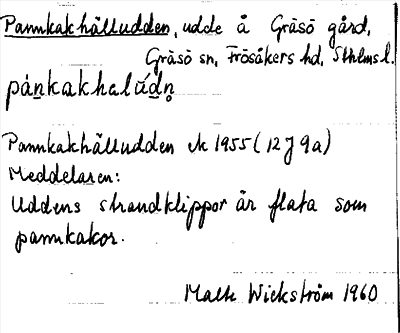 Pannkakhälludden, udde å Gräsö gård,
Gräsö sn, Frösåkers hd, Sthlms l.
pánkakhalúdn̥
Pannkakhälludden ek 1955 (12J 9a)
Meddelaren:
Uddens strandklippor är flata som
pannkakor.
Malte Wickström 1960